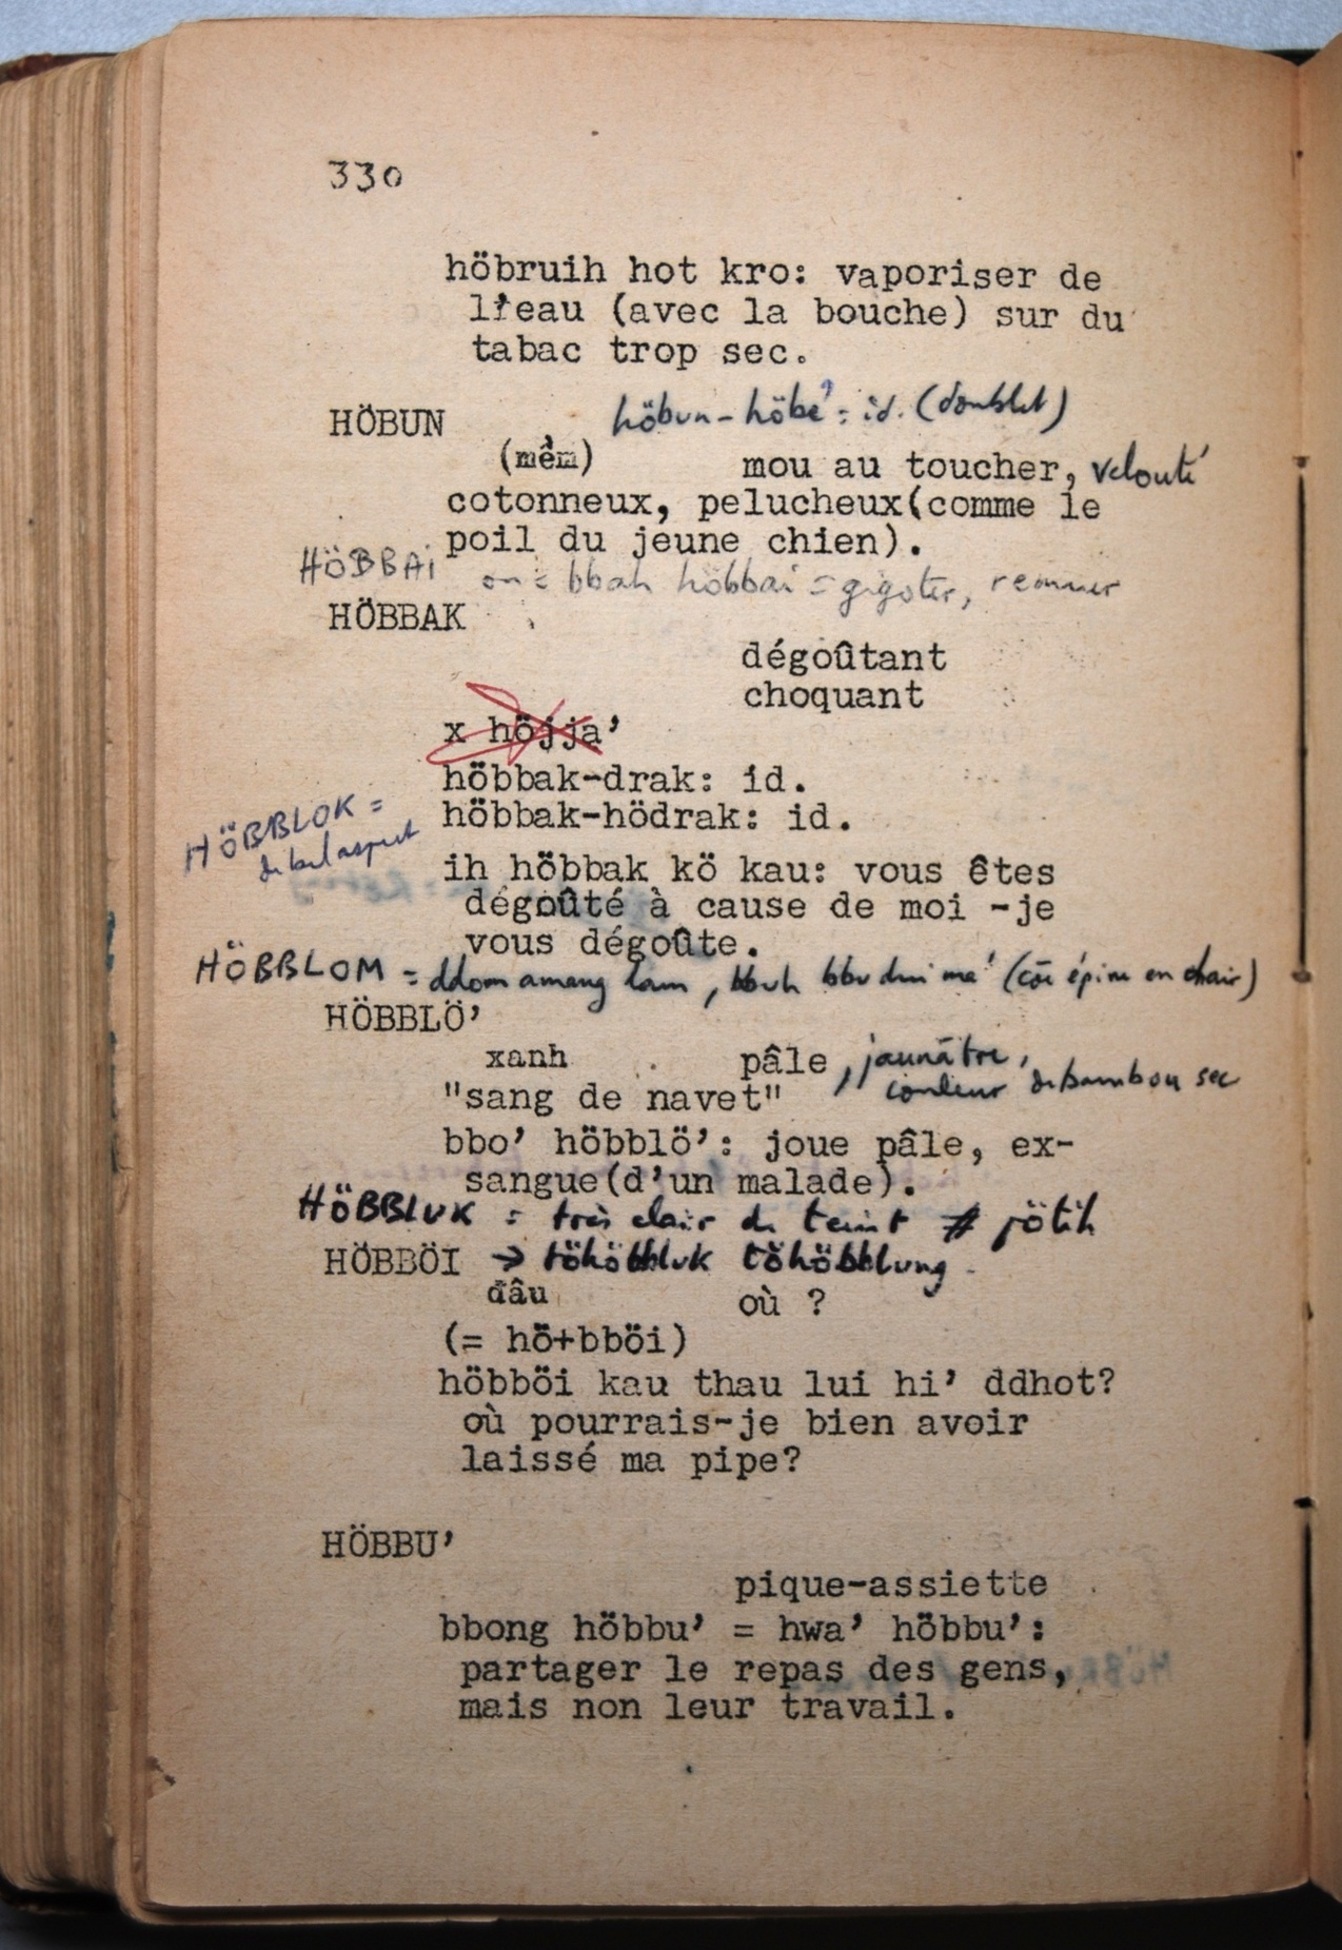 330
höbruih hot kro: vaporiser de
l'eau (avec la bouche) sur du
tabac trop sec.
HÖBUN höbun-höbe' = id. (doublet)
(mềm) mou au toucher, velouté
cotonneux, pelucheux(comme le
poil du jeune chien).
HÖBBAI on = bbah höbbai = gigoter, remuer
HÖBBAK
dégoûtant
choquant
x höjja'
höbbak-drak: id.
höbbak-hödrak: id.
HÖBBLOK =
de bel aspect
ih höbbak kö kau: vous êtes
dégoûté à cause de moi -je
vous dégoûte.
HÖBBLOM = ddom amang lam, bbuh bbu dui ma' (cõe épine en chair)
HÖBBLÖ'
xanh pâle, jaunâtre,
couleur de bambou sec
"sang de navet"
bbo' höbblö': joue pâle, ex-
sangue(d'un malade).
HÖBBLUK = très clair de teint ≠ jötih
HÖBBÖI → töhöbbluk töhöbblung
đâu où ?
(= hö+bböi)
höbböi kau thau lui hi' ddhot?
où pourrais-je bien avoir
laissé ma pipe?
HÖBBU'
pique-assiette
bbong höbbu' = hwa' höbbu':
partager le repas des gens,
mais non leur travail.